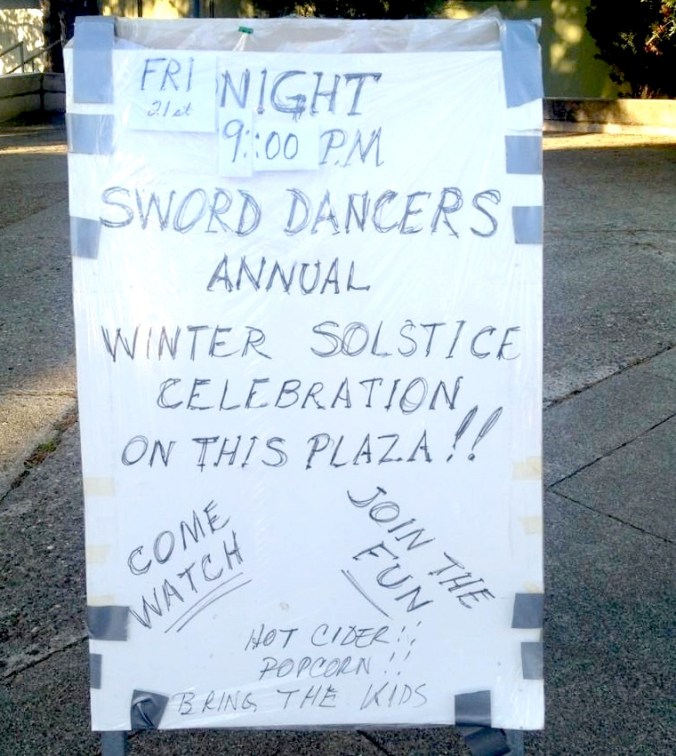 FRI NIGHT
21st
9::00 PM
SWORD DANCERS
ANNUAL
WINTER SOLSTICE
CELEBRATION
ON THIS PLAZA!!
COME
WATCH
JOIN THE
FUN
HOT CIDER!!
POPCORN!!
BRING THE KIDS